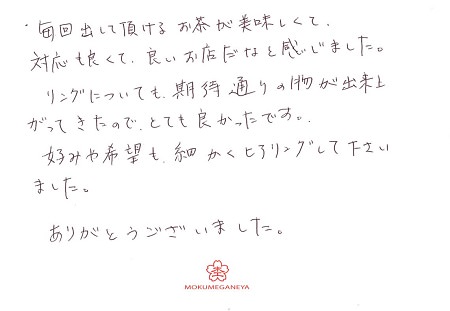 ・毎回出して頂けるお茶が美味しくて、
対応も良くて、良いお店だなと感じました。
リングについても、期待通りの物が出来上
がってきたので、とても良かったです。
好みや希望も、細かくヒアリングして下さい
ました。
ありがとうございました。
杢
MOKUMEGANEYA